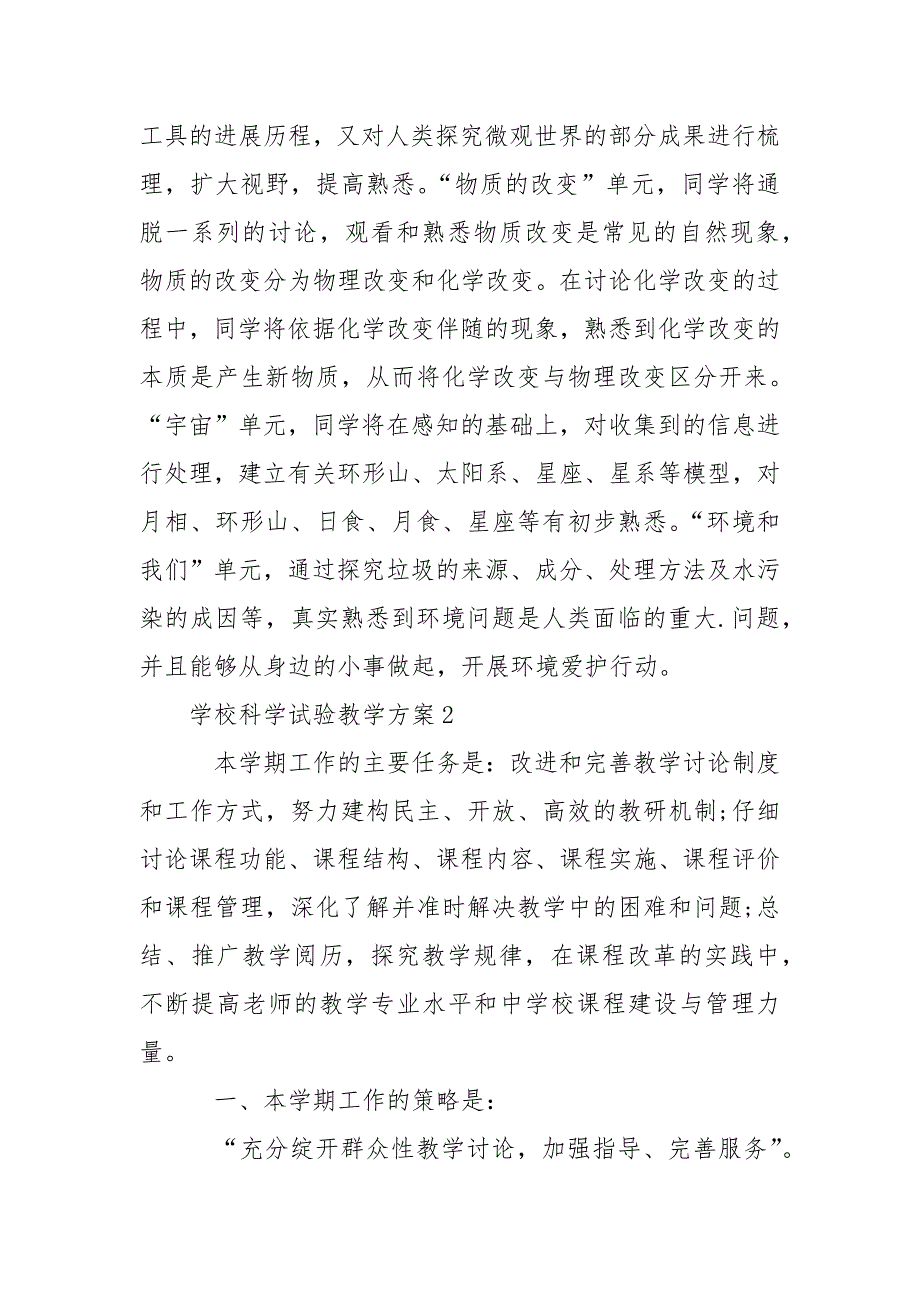 工具的进展历程，又对人类探究微观世界的部分成果进行梳
理，扩大视野，提高熟悉。“物质的改变”单元，同学将通
脱一系列的讨论，观看和熟悉物质改变是常见的自然现象，
物质的改变分为物理改变和化学改变。在讨论化学改变的过
程中，同学将依据化学改变伴随的现象，熟悉到化学改变的
本质是产生新物质，从而将化学改变与物理改变区分开来。
“宇宙”单元，同学将在感知的基础上，对收集到的信息进
行处理，建立有关环形山、太阳系、星座、星系等模型，对
月相、环形山、日食、月食、星座等有初步熟悉。“环境和
我们”单元，通过探究垃圾的来源、成分、处理方法及水污
染的成因等，真实熟悉到环境问题是人类面临的重大.问题，
并且能够从身边的小事做起，开展环境爱护行动。
学校科学试验教学方案2
本学期工作的主要任务是：改进和完善教学讨论制度
和工作方式，努力建构民主、开放、高效的教研机制;仔细
讨论课程功能、课程结构、课程内容、课程实施、课程评价
和课程管理，深化了解并准时解决教学中的困难和问题;总
结、推广教学阅历，探究教学规律，在课程改革的实践中，
不断提高老师的教学专业水平和中学校课程建设与管理力
量。
一、本学期工作的策略是：
“充分绽开群众性教学讨论，加强指导、完善服务”。